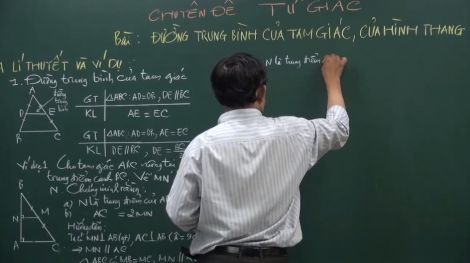 CHUYÊN ĐỀ TỨ GIÁC
Bài: ĐƯỜNG TRUNG BÌNH CỦA TAM GIÁC, CỦA HÌNH THANG
LÍ THUYẾT VÀ VÍ DỤ:
1. Đường trung bình của tam giác
đường trung bình
A
D E
B C
GT ΔABC: AD=DB, DE//BC
KL AE = EC
GT ΔABC: AD=DB, AE=EC
KL DE//BC, DE =
Ví dụ 1 Cho tam giác ABC vuông tại
trung điểm cạnh BC. Vẽ MN
N Chứng minh rằng:
a) N là trung điểm của
b) AC = 2MN
B
N M
A C
Từ MN⊥AB(gt), AC⊥AB
→ MN // AC
ΔABC có MB=MC, MN //
N là trung điểm